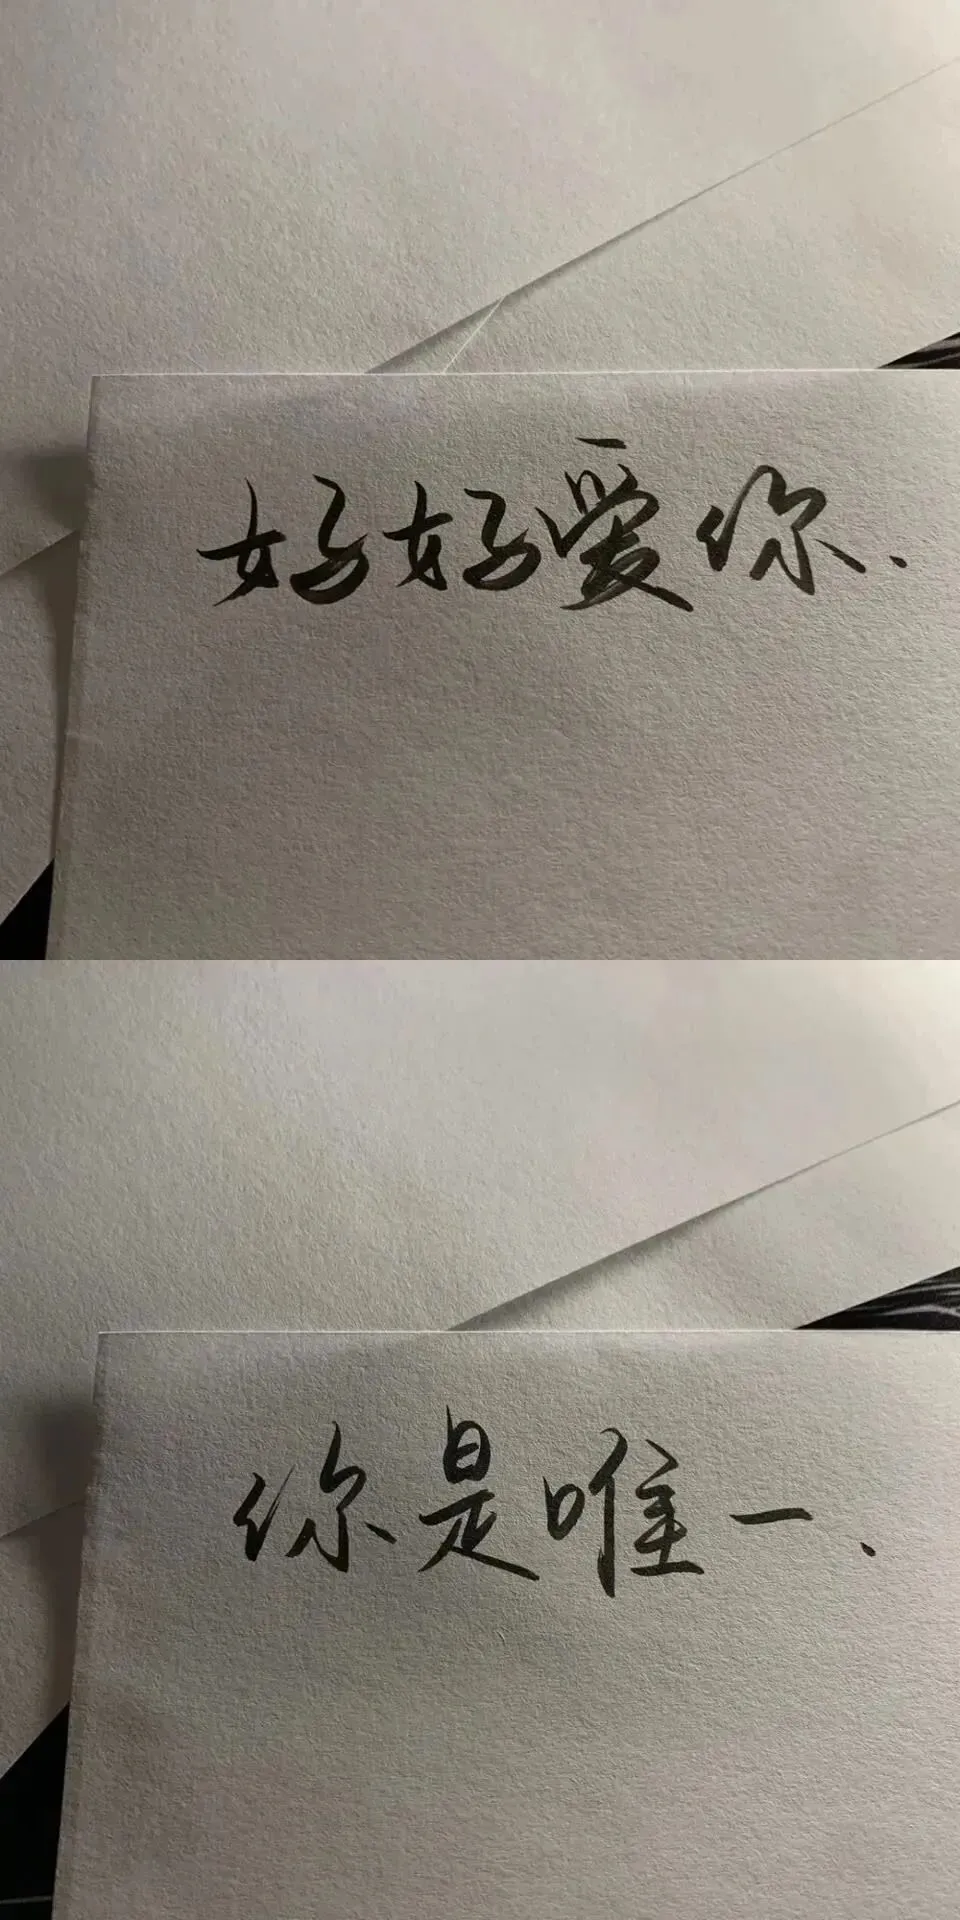 好好爱你.
你是唯一.